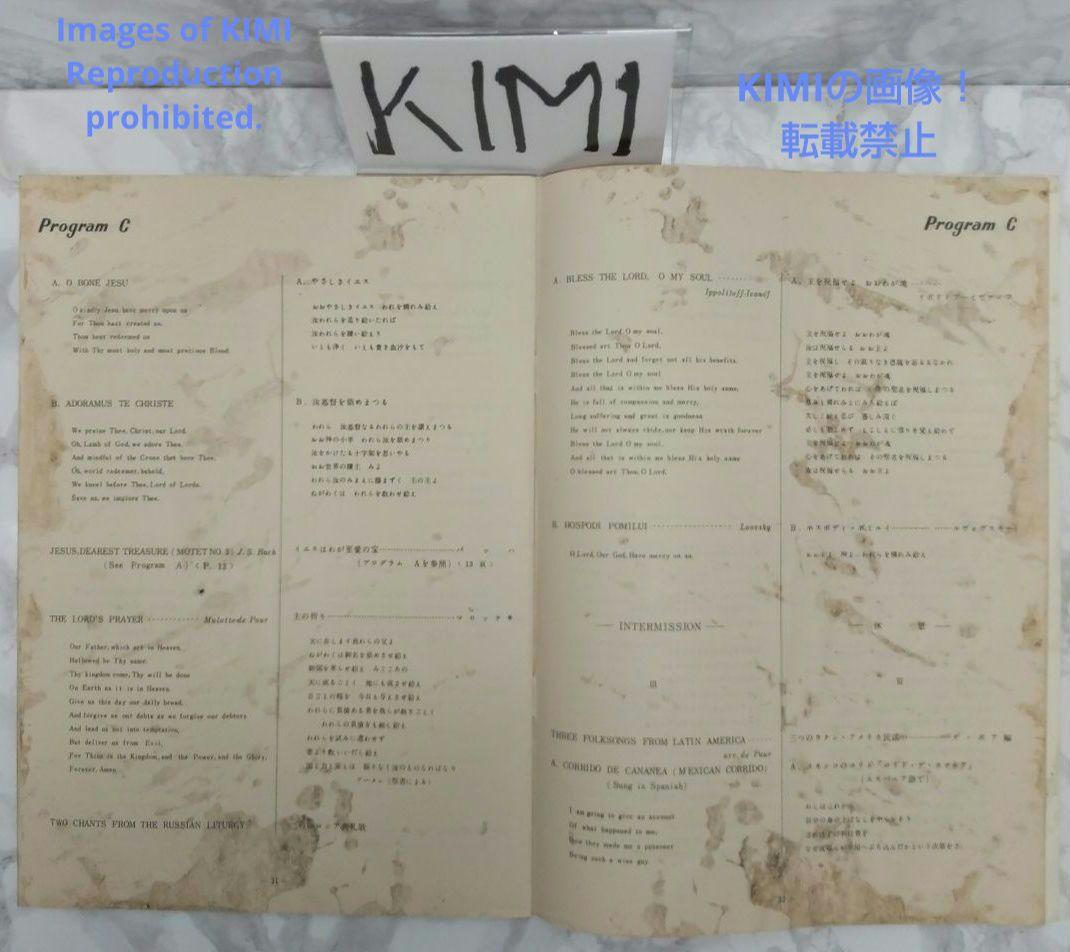 Images of KIMI
Reproduction
prohibited.
KIMI
KIMIの画像！
転載禁止
Program C
A. O BONE JESU
O kindly Jesu, have mercy upon us
For Thou hast created us,
Thou hast redeemed us
With Thy most holy and most precious Blood.
B. ADORAMUS TE CHRISTE
We praise Thee, Christ, our Lord.
Oh, Lamb of God, we adore Thee.
And mindful of the Cross that bore Thee.
Oh, world redeemer, behold,
We kneel before Thee, Lord of Lords.
Save us, we implore Thee.
JESUS, DEAREST TREASURE (MOTET NO. 3) J. S. Bach
(See Program A) (P. 13)
THE LORD'S PRAYER ············ Malottede Paur
Our Father, which art in Heaven,
Hallowed be Thy name.
Thy kingdom come, Thy will be done
On Earth as it is in Heaven.
Give us this day our daily bread,
And forgive us our debts as we forgive our debtors
And lead us not into temptation,
But deliver us from Evil,
For Thine is the Kingdom, and the Power, and the Glory,
Forever, Amen.
TWO CHANTS FROM THE RUSSIAN LITURGY
A. やさしきイエス
おおやさしきイエス われを憐れみ給え
汝われらを造り給いたれば
汝われらを贖い給えり
いとも浄く いとも貴き血汐をもて
B. 汝基督を崇めまつる
われら 汝基督なるわれらの主を讃えまつる
おお神の小羊 われら汝を崇めまつり
汝をかけたる十字架を思いやる
おお世界の贖主 みよ
われら汝のみまえに跪まずく 主の主よ
ねがわくは われらを救わせ給え
イエスはわが至愛の宝 ············ バッハ
(アプログラム Aを参照) (13頁)
主の祈り ············ マロッテ
天に在します我らの父よ
ねがわくは御名を崇めさせ給え
御国を来らせ給え みこころの
天に成るごとく 地にも成させ給え
日ごとの糧を 今日も与えさせ給え
われらに負債ある者を我らが赦すごとく
われらの負債をも赦し給え
われらを試みに遭わせず
悪より救いいだし給え
アーメン (聖書による)
31
Program C
A. BLESS THE LORD, O MY SOUL ········
Ippolitoff-Iwanof
Bless the Lord, O my soul,
Blessed art Thou O Lord,
Bless the Lord and forget not all his benefits.
Bless the Lord O my soul
And all that is within me bless His holy name,
He is full of compassion and mercy,
Long suffering and great is goodness
He will not always chide, nor keep His wrath forever
Bless the Lord O my soul,
And all that is within me bless His holy name
O blessed art Thou, O Lord.
B. HOSPODI POMILUI ················ Lvovsky
O Lord, Our God, Have mercy on us.
— INTERMISSION —
III
THREE FOLKSONGS FROM LATIN AMERICA ·····
arr. de Paur
A. CORRIDO DE CANANEA (MEXICAN CORRIDO)
(Sung in Spanish)
I am going to give an account
Of what happened to me,
How they made me a prisoner
Being such a wise guy.
A. 主を祝福せよ おおわが魂 ········
主を祝福せよ おおわが魂
汝は祝せらる おお主よ
主を祝福せよ おおわが魂
主を祝福せよ おおわが魂
汝は祝せらる おお主よ
B. ホスポディ・ポミルイ ············ ルヴォヴスキー
おお主よ 神よ われらを憐れみ給え
— 休 憩 —
III
三つのラテン・アメリカ民謡 ············ デ・ポア 編
(スペイン語で)
32